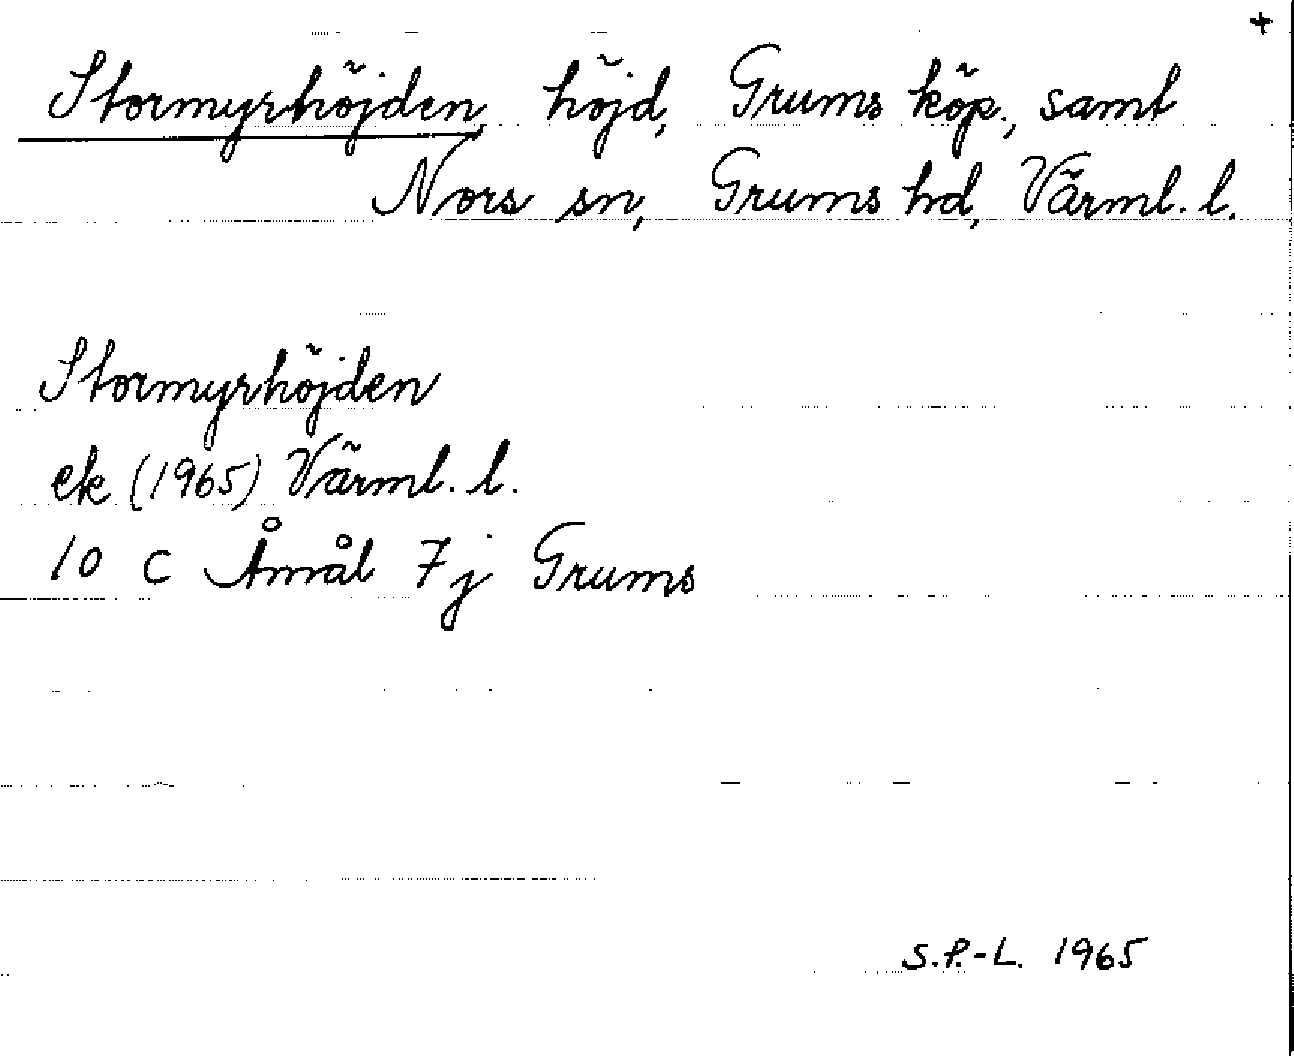 +
Stormyrhöjden, höjd, Grums köp., samt
Nors sn, Grums hd, Värml. l.
Stormyrhöjden
ek (1965) Värml. l.
10 C Åmål 7j Grums
S.P.-L. 1965